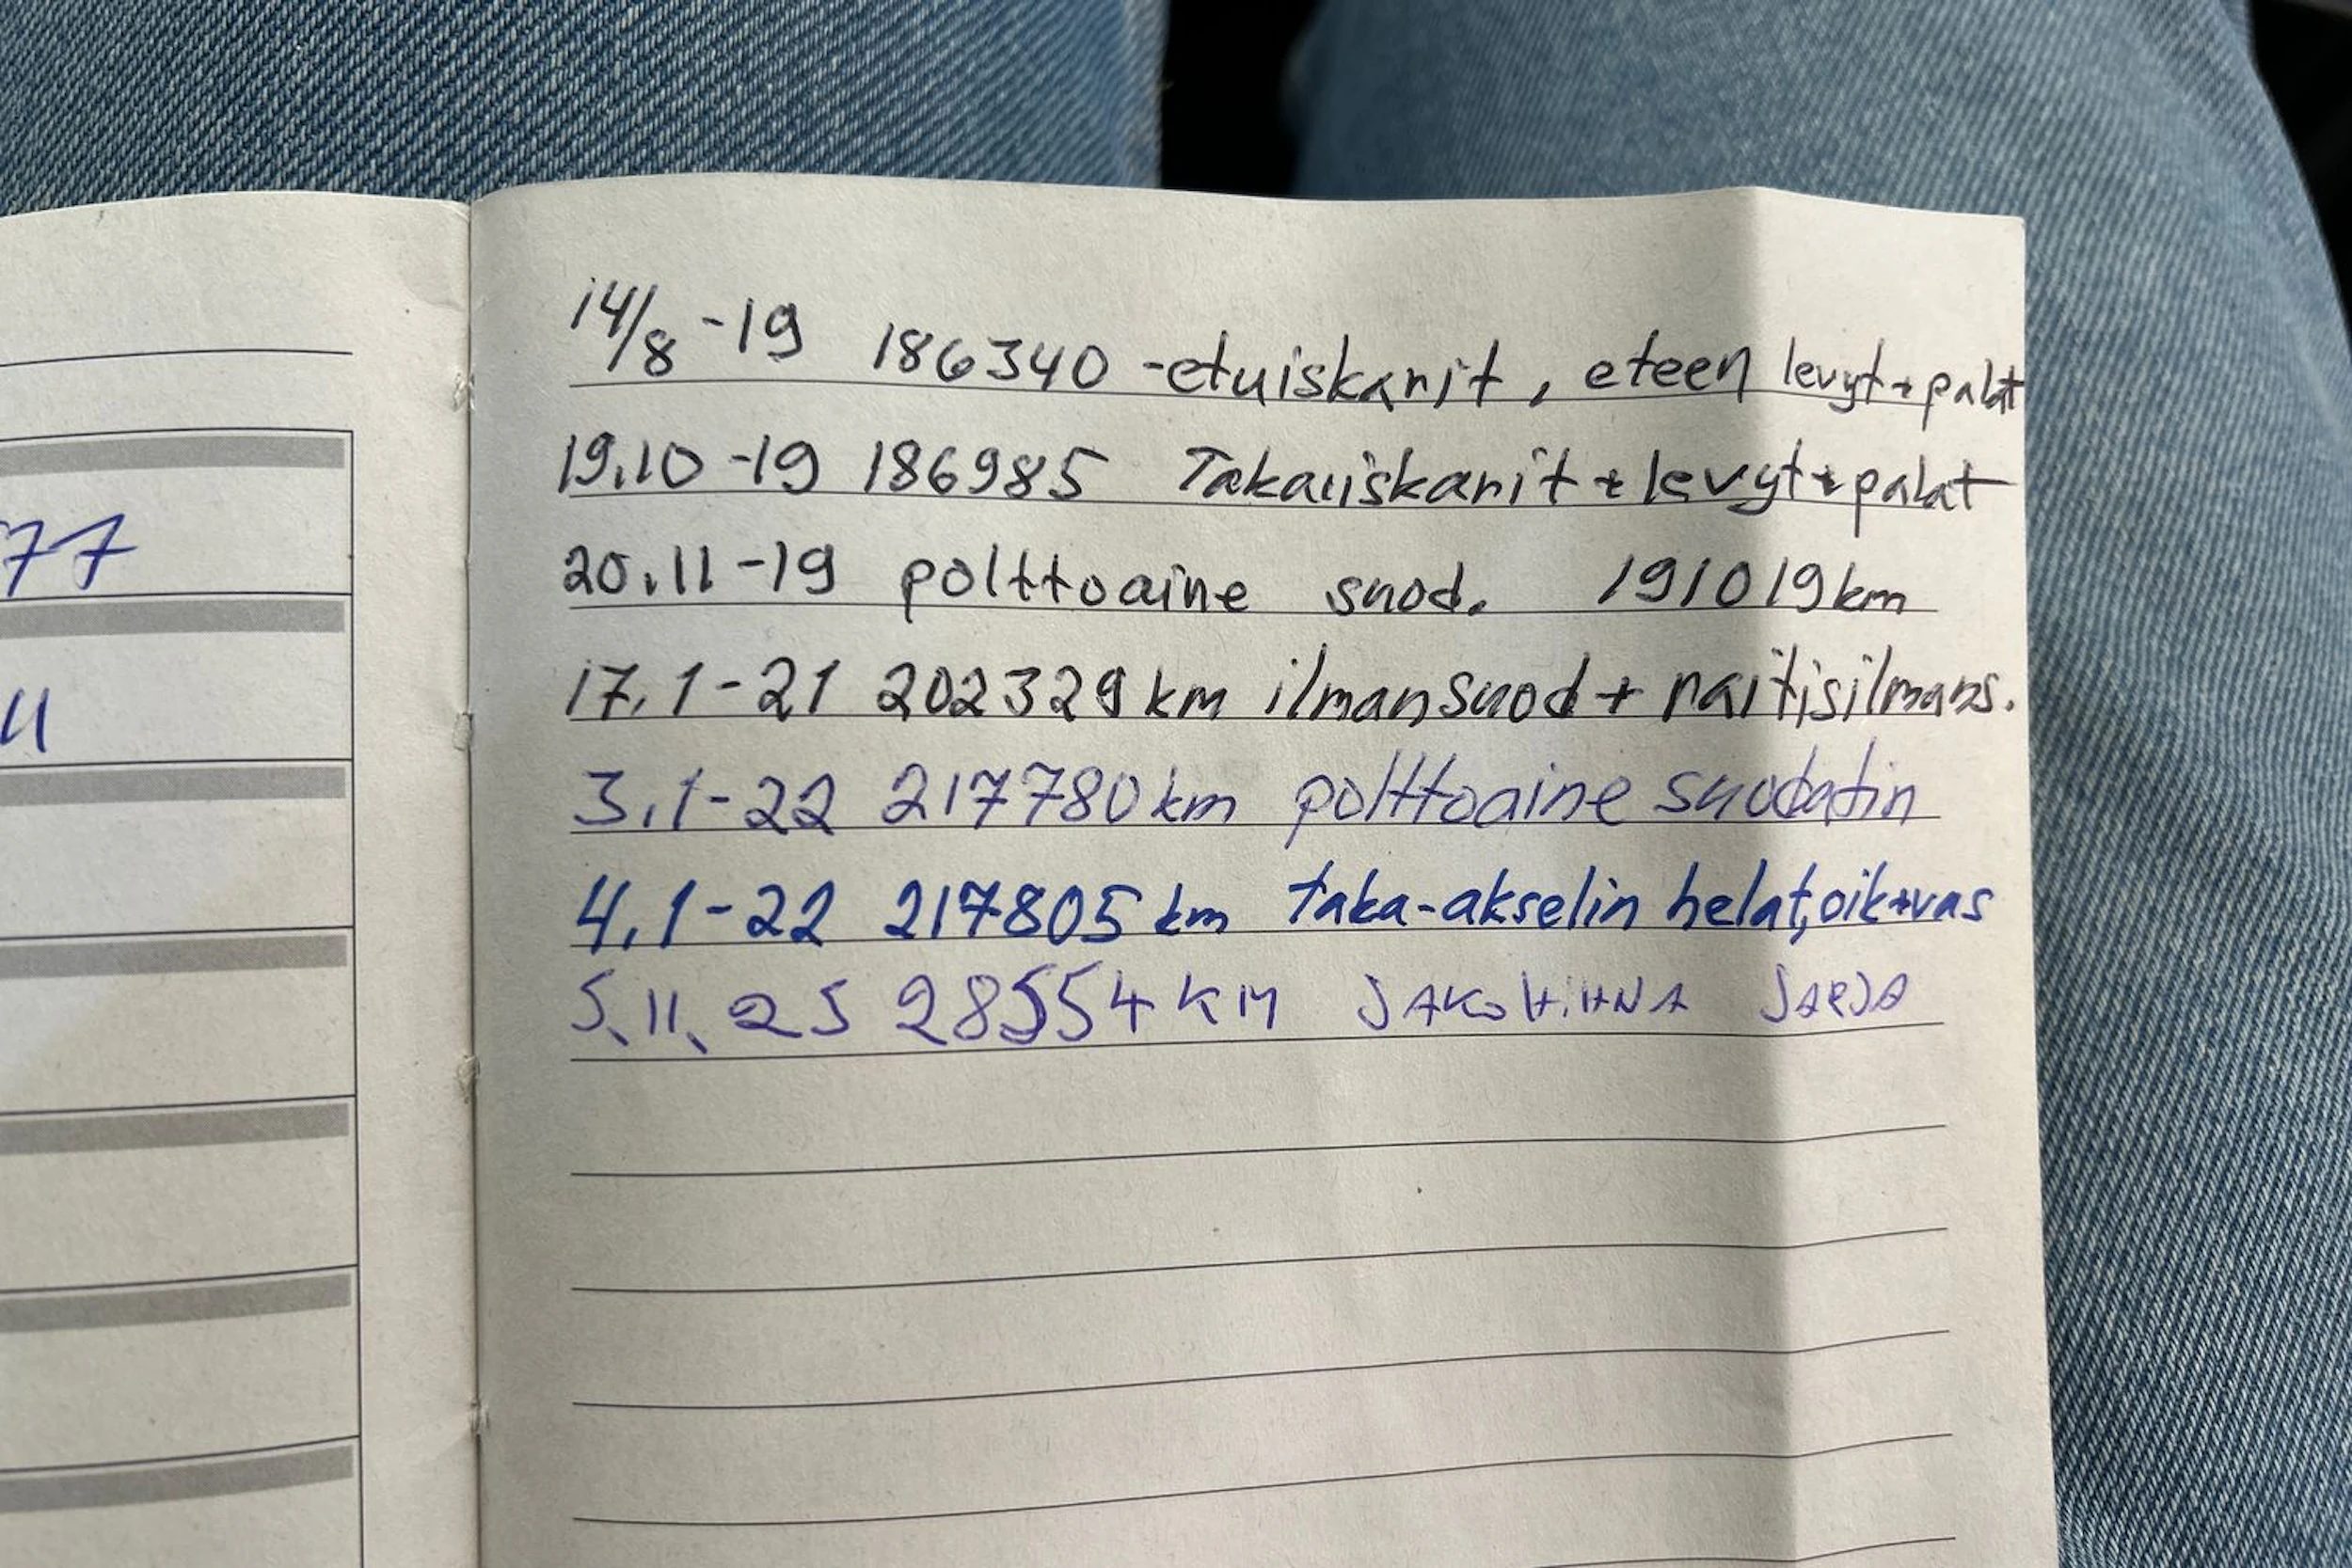 14/8 -19 186340 -etuiskarit, eteen levyt+palat
19.10 -19 186985 Takaiskarit + levyt+palat
20.11 -19 polttoaine suod. 191019km
17.1-21 202329km ilmansuod + raitisilmans.
3.1-22 217780km polttoaine suodatin
4.1-22 217805km taka-akselin helat, oik+vas
5.11.25 28554KM JAKOHIHNA SARJA
77